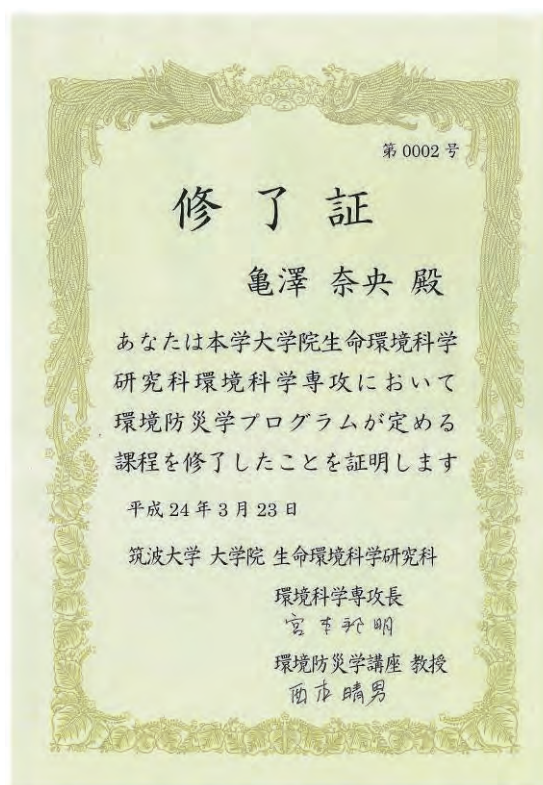 第 0002 号
修了証
亀澤 奈央 殿
あなたは本学大学院生命環境科学
研究科環境科学専攻において
環境防災学プログラムが定める
課程を修了したことを証明します
平成 24 年 3 月 23 日
筑波大学 大学院 生命環境科学研究科
環境科学専攻長
宮本邦明
環境防災学講座 教授
西本晴男